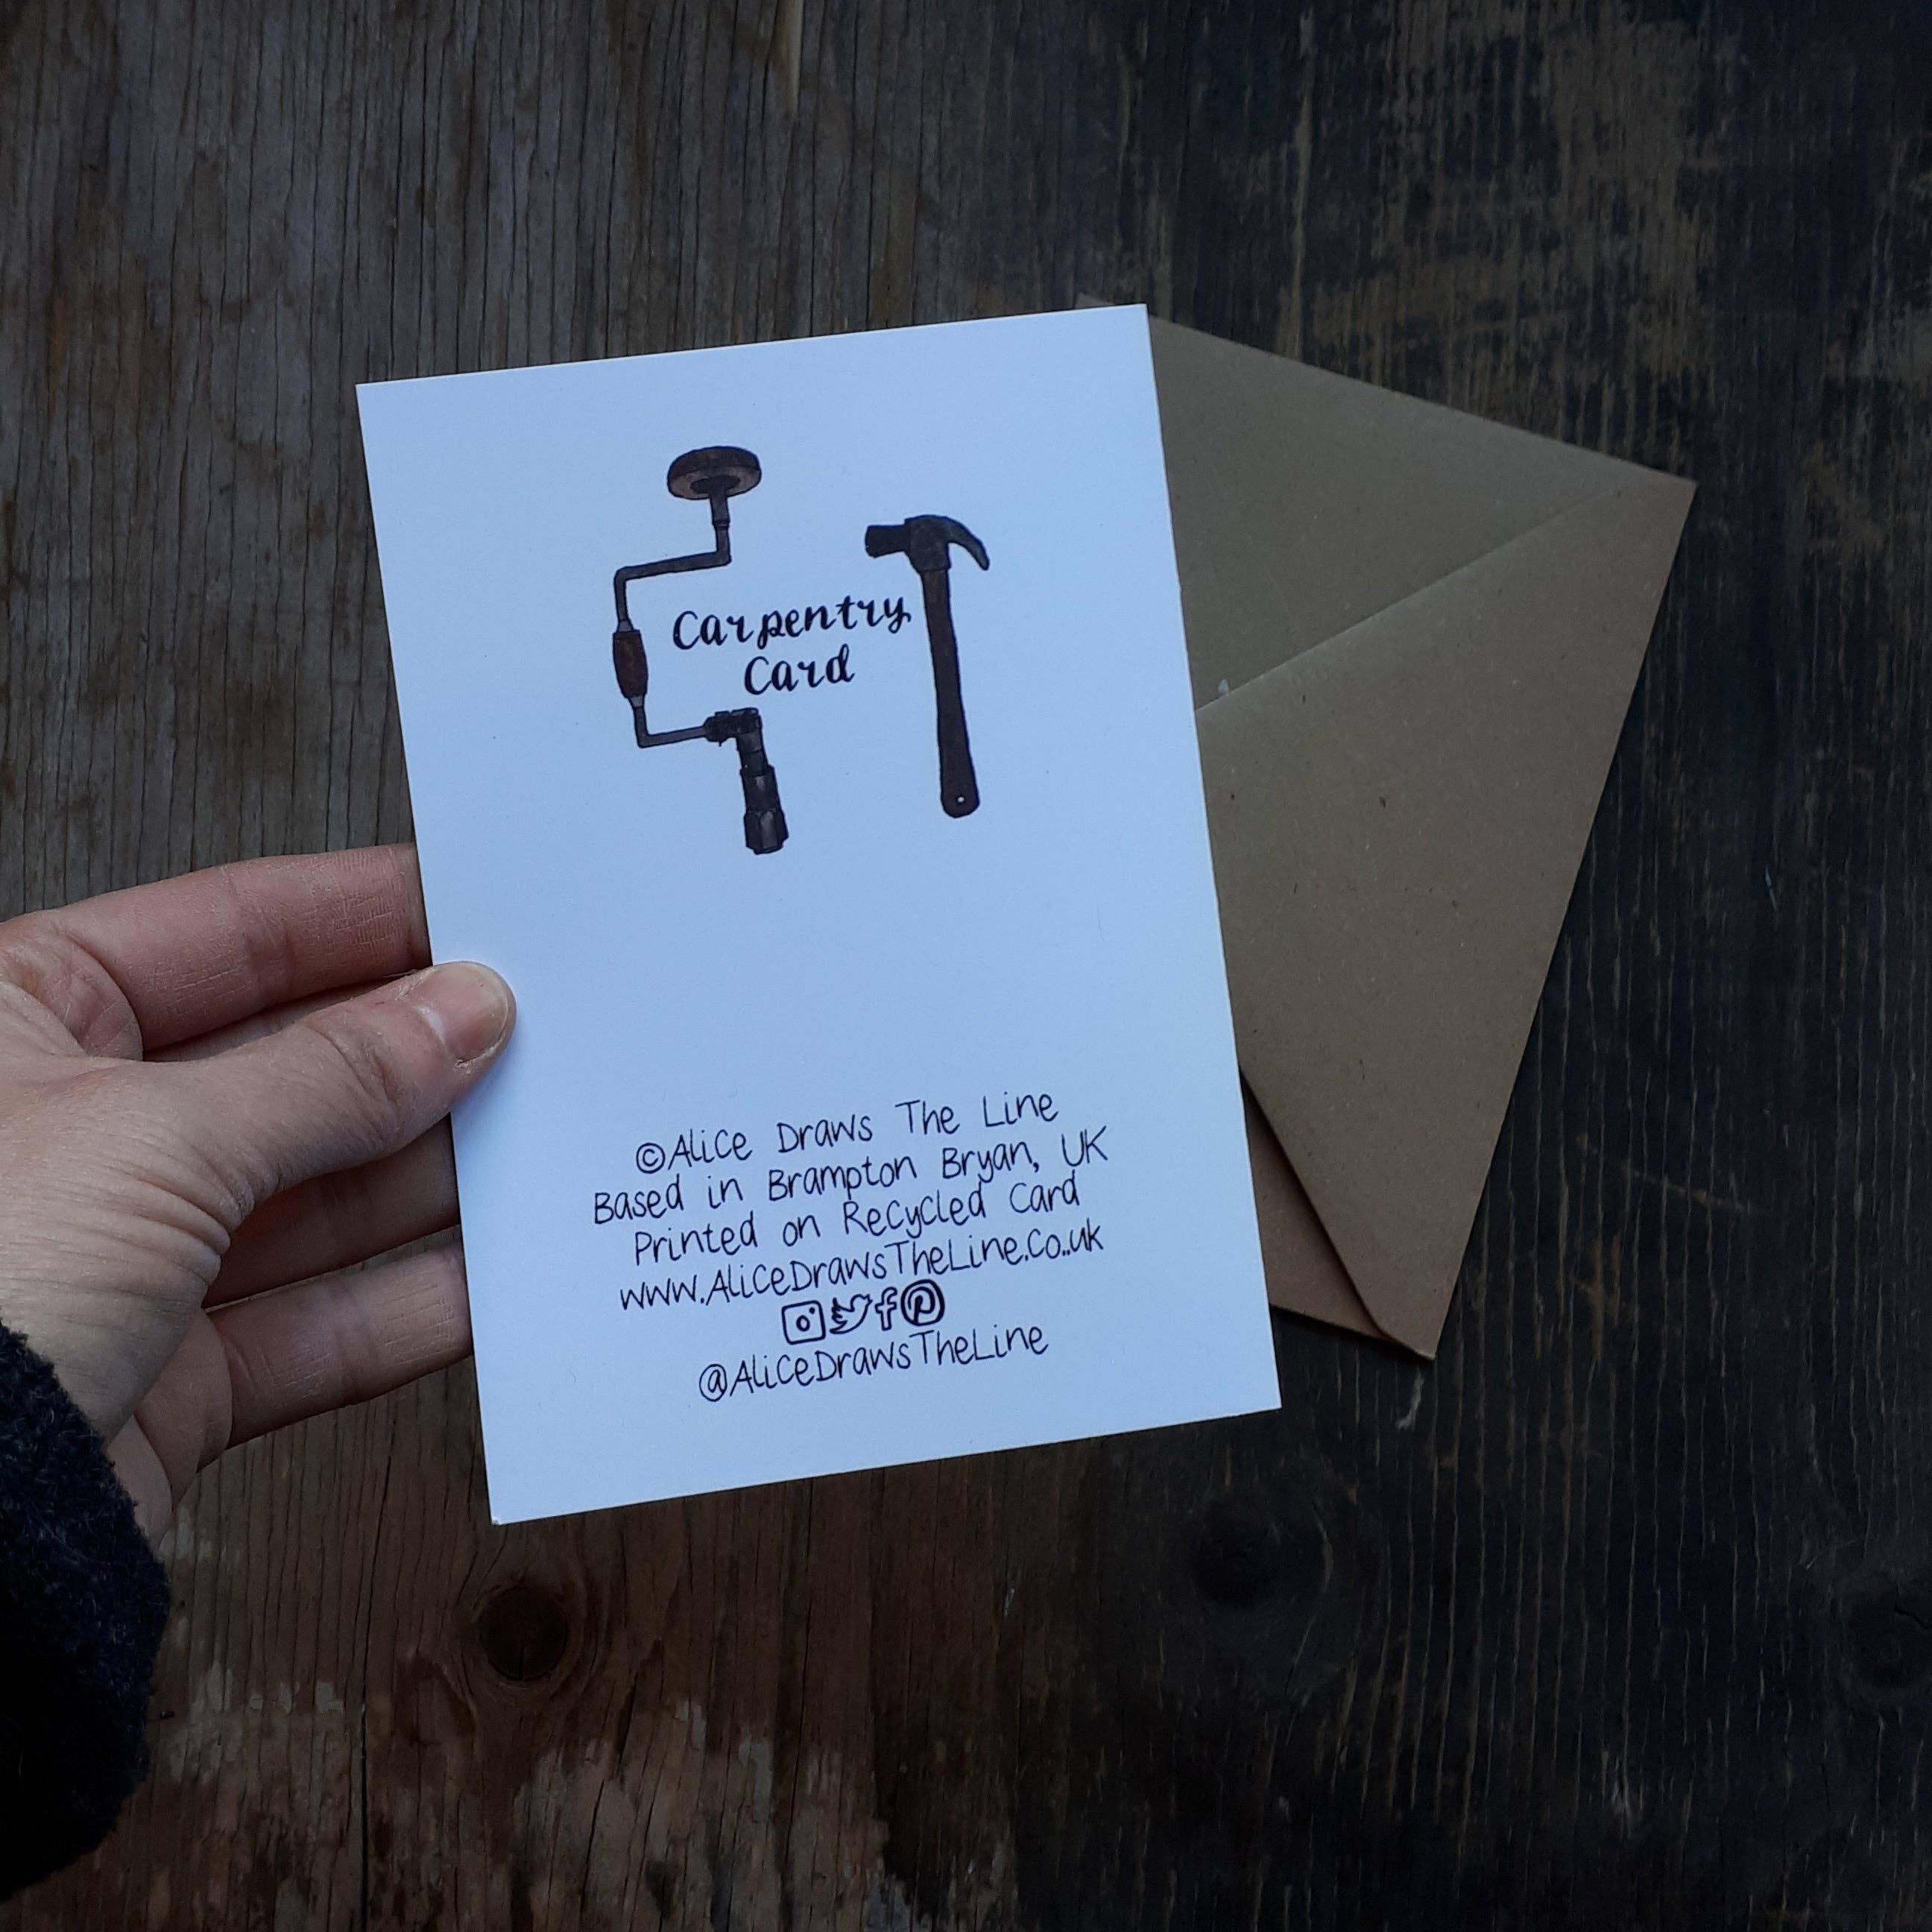 Carpentry
Card
©Alice Draws The Line
Based in Brampton Bryan, UK
Printed on Recycled Card
www.AliceDrawsTheLine.co.uk
@AliceDrawsTheLine